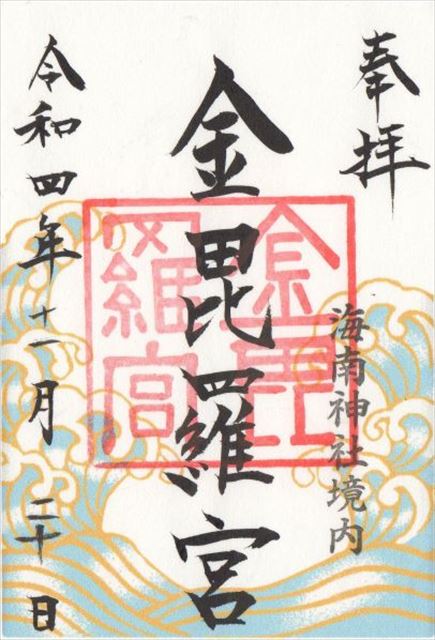 奉拝
海南神社境内
金毘羅宮
金毘羅宮
令和四年十一月二十日